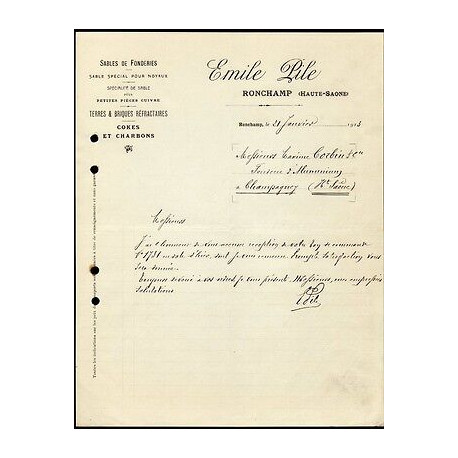 SABLES DE FONDERIES
SABLE SPÉCIAL POUR NOYAUX
SPÉCIALITÉ DE SABLE
POUR
PETITES PIÈCES CUIVRE
TERRES & BRIQUES RÉFRACTAIRES
COKES
ET CHARBONS
Emile Pile
RONCHAMP (HAUTE-SAONE)
Ronchamp, le 21 Janvier 1913
Messieurs Corbin & Cie
Fonderie d'Aluminium
à Champagney (Hte Saône)
Messieurs
J'ai l'honneur de vous accuser réception de votre bon de commande
N° 1751 en date d'hier, dont je vous remercie. Complète satisfaction vous
sera donnée.
Toujours dévoué à vos ordres je vous présente, Messieurs, mes empressées
salutations
E Pile